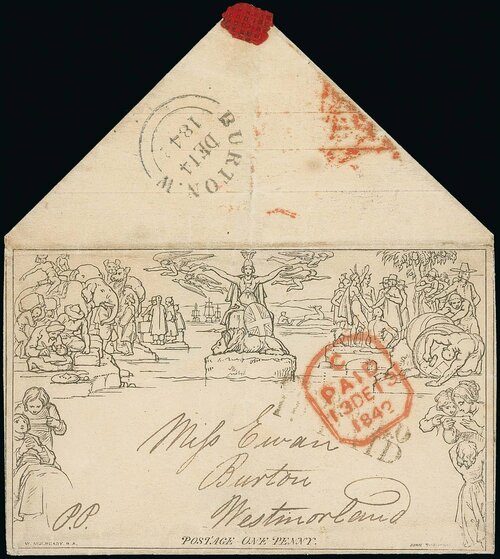 BURTON.W
DE14
184
C
PAID
13DE13
1842
PAID
Miss Ewan
Burton
Westmorland
P.P.
POSTAGE ONE PENNY.
W. MULREADY. R.A.
JOHN